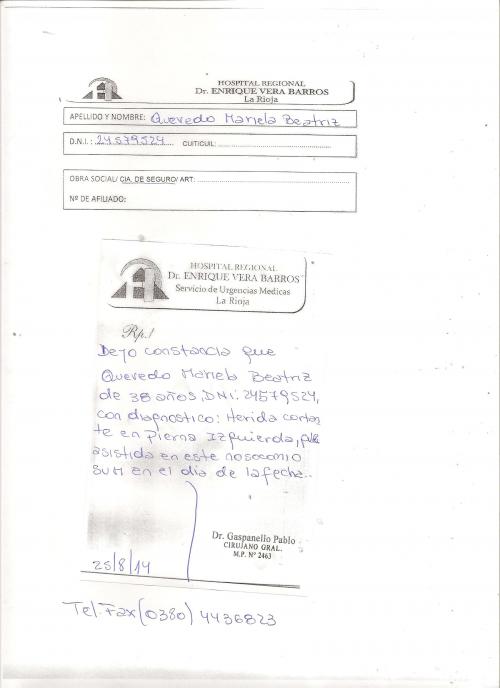 HOSPITAL REGIONAL
Dr. ENRIQUE VERA BARROS
La Rioja
APELLIDO Y NOMBRE: Quevedo Mariela Beatriz
D.N.I.: 24579524 CUIT/CUIL:
OBRA SOCIAL/ CIA. DE SEGURO/ ART:
Nº DE AFILIADO:
HOSPITAL REGIONAL
Dr. ENRIQUE VERA BARROS
Servicio de Urgencias Medicas
La Rioja
Rp./
Dejo constancia que
Quevedo Mariela Beatriz
de 38 años, DNI: 24579524,
con diagnostico: Herida cortan
te en pierna Izquierda, fue
asistida en este nosocomio
SUM en el dia de la fecha..
Dr. Gaspanello Pablo
CIRUJANO GRAL.
M.P. Nº 2463
25/8/14
Tel. Fax (0380) 4436823